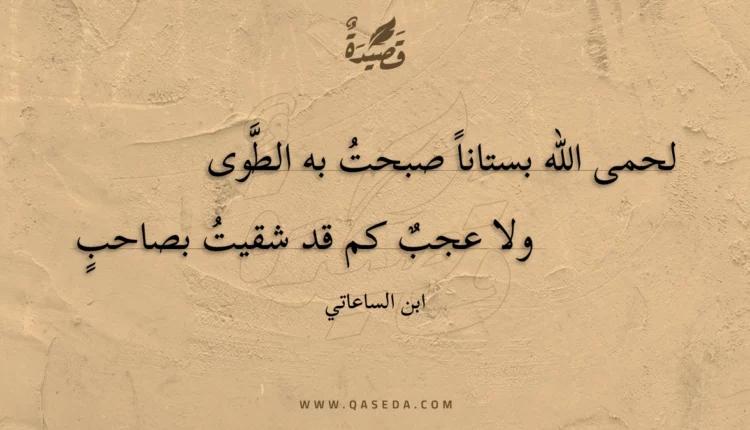 قَصِيْدَةٌ
لحمى الله بستاناً صبحتُ به الطَّوى
ولا عجبٌ كم قد شقيتُ بصاحبٍ
ابن الساعاتي
WWW.QASEDA.COM